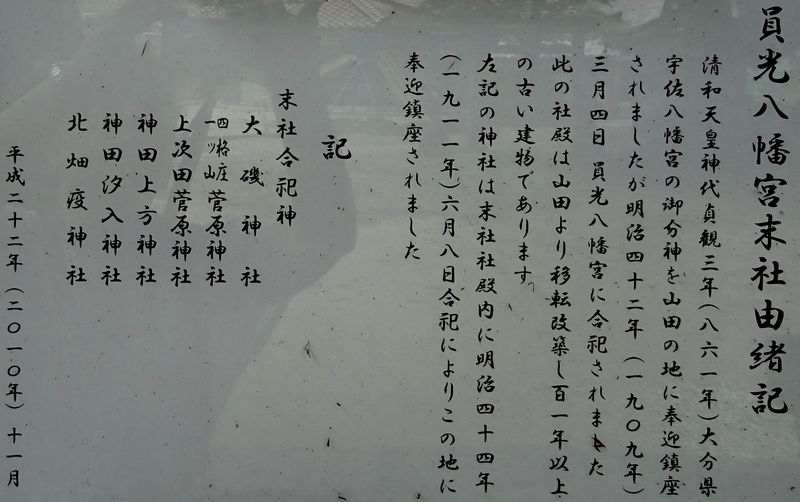 員光八幡宮末社由緒記
清和天皇神代貞観三年(八六一年)大分県
宇佐八幡宮の御分神を山田の地に奉迎鎮座
されましたが明治四十二年(一九〇九年)
三月四日 員光八幡宮に合祀されました
此の社殿は山田より移転改築し百一年以上
の古い建物であります
左記の神社は末社社殿内に明治四十四年
(一九一一年)六月八日合祀によりこの地に
奉迎鎮座されました
記
末社合祀神
大磯神社
四格庄一ッ山菅原神社
上次田菅原神社
神田上方神社
神田汐入神社
北畑疫神社
平成二十二年(二〇一〇年)十一月